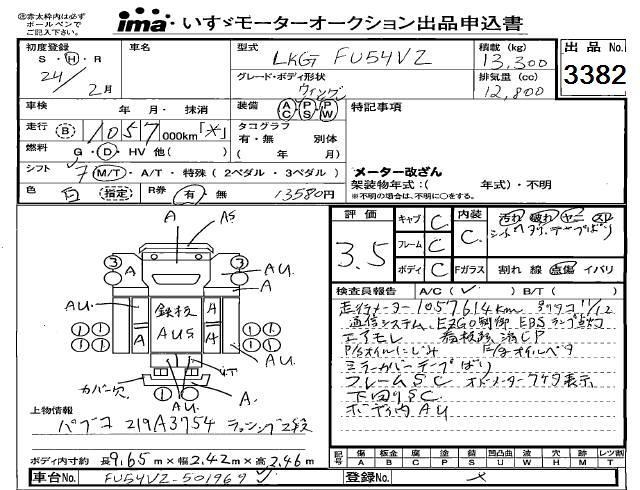 ㊟赤太枠内は必ず
ボールペンで
ご記入下さい。
ima いすゞモーターオークション出品申込書
初度登録 車名 型式 LKG FU54VZ 積載 (kg) 13,300 出品No.
S・H・R 24/2月 グレード・ボディ形状 ウィング 排気量 (cc) 12,800 3382
車検 年 月・ 抹消 装備 AC PS PW 特記事項
走行 B 1057 000km「※」 タコグラフ
有・無 別体
燃料 G・D・HV 他( ) ( 年 月)
シフト 7 M/T・A/T・特殊 (2ペダル・3ペダル) メーター改ざん
架装物年式:( 年式)・不明
色 白 (指定) R券 有・無 13580円 ※不明の場合は、不明に○をする。
評価 3.5 キャブ C 内装 C 汚れ 破れ ヤニ スリ
フレーム C
ボディ C Fガラス 割れ 線 点傷 イバリ
検査員報告 A/C( ✓ ) B/T( )
走行メーター1057614km デジタコ 11/12
通信システム、EZGO制御 EBSランプ点灯
エアモレ 看板跡 済CP
P/Sオイルにじみ
ミラーカバーテープばり
フレームSC オドメーター
下回りSC
ボディ内AU
A A5
3 3
A AU
A
AU 鉄板 AUS A A
① ① ① ①
A AU
カバー穴 A
AU
上物情報
パブコ 219A3754
ボディ内寸約 長9.65m×幅2.42m×高2.46m
記号 傷 板金 腐 塗 錆 凹凸曲 波 穴 跡 レツ割
A B C P S U W H M T
車台No. FU54VZ-501969 登録No.